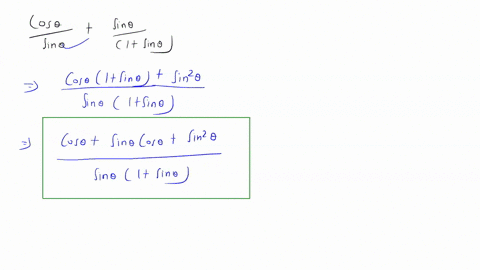 cosθ/sinθ + sinθ/(1+sinθ)
⇒ cosθ(1+sinθ) + sin²θ / sinθ(1+sinθ)
⇒ cosθ + sinθ cosθ + sin²θ / sinθ(1+sinθ)